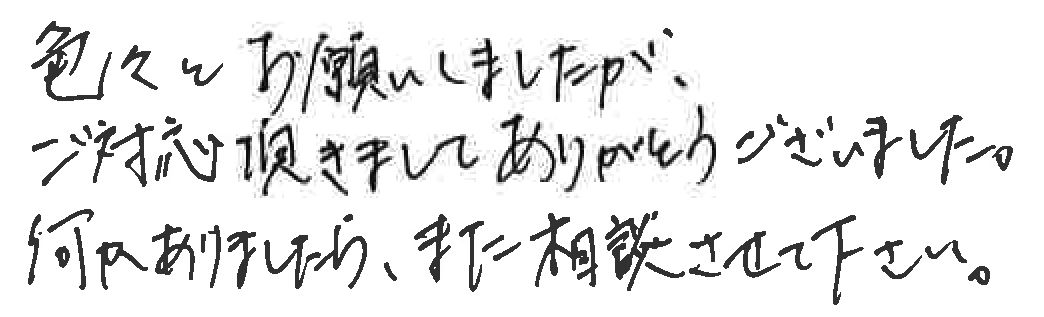 色々とお願いしましたが、
ご対応頂きましてありがとうございました。
何かありましたら、また相談させて下さい。